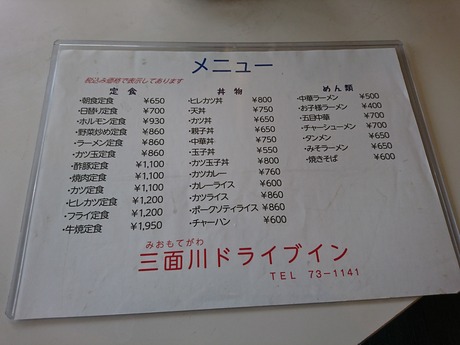 メニュー
税込み価格で表示してあります
定食
・朝食定食 ¥650
・日替り定食 ¥700
・ホルモン定食 ¥930
・野菜炒め定食 ¥860
・ラーメン定食 ¥860
・カツ玉定食 ¥860
・酢豚定食 ¥1,100
・焼肉定食 ¥1,100
・カツ定食 ¥1,100
・ヒレカツ定食 ¥1,200
・フライ定食 ¥1,200
・牛焼定食 ¥1,950
丼物
・ヒレカツ丼 ¥800
・天丼 ¥750
・カツ丼 ¥650
・親子丼 ¥650
・中華丼 ¥750
・玉子丼 ¥550
・カツ玉子丼 ¥800
・カツカレー ¥760
・カレーライス ¥600
・カツライス ¥860
・ポークソティライス ¥860
・チャーハン ¥600
めん類
・中華ラーメン ¥500
・お子様ラーメン ¥400
・五目中華 ¥700
・チャーシューメン ¥700
・タンメン ¥650
・みそラーメン ¥650
・焼きそば ¥600
みおもてがわ
三面川ドライブイン
TEL 73-1141